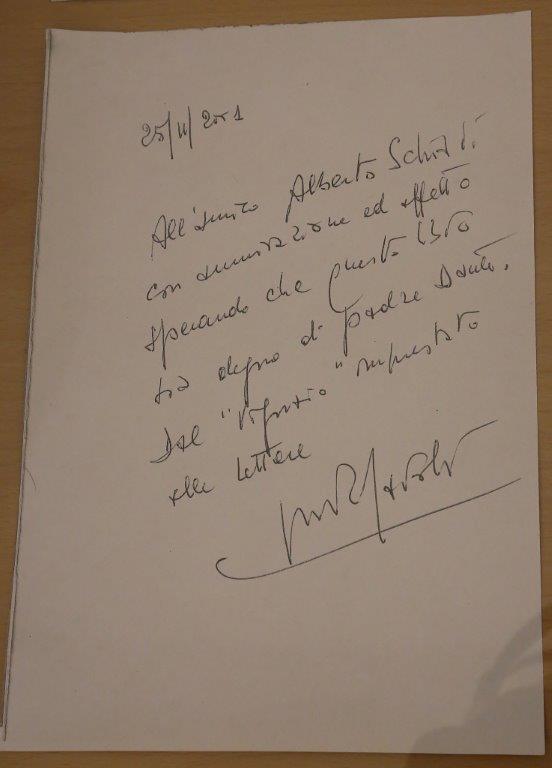 25/11/2001
All'amico Alberto
con ammirazione ed affetto
sperando che questo libro
sia degno di padre Dante.
Dal " " imprestato
alle lettere